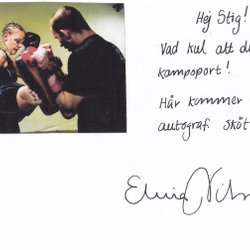 Hej Stig!
Vad kul att du
kampsport!
Här kommer
autograf. Sköt